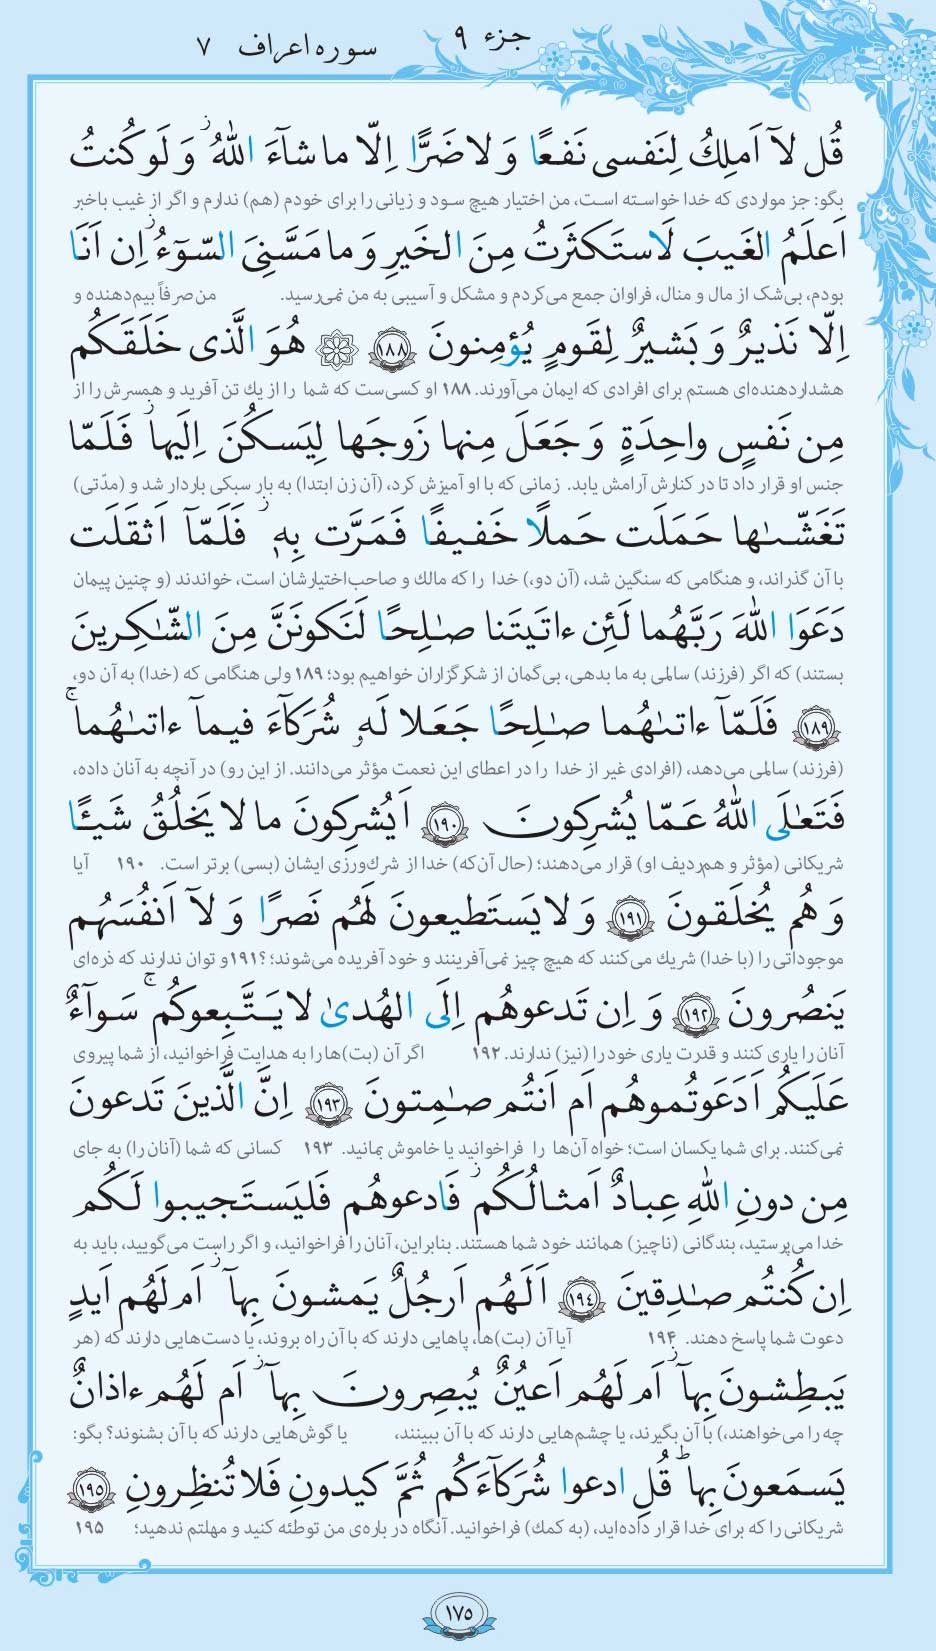 جزء ۹ سوره اعراف ۷
قُل لآ اَملِكُ لِنَفسى نَفعًا وَ لا ضَرًّا اِلّا ما شآءَ اللهُۚ وَ لَو كُنتُ
بگو: جز مواردی که خدا خواسته است، من اختیار هیچ سود و زیانی را برای خودم (هم) ندارم و اگر از غیب باخبر
اَعلَمُ الغَيبَ لَاستَكثَرتُ مِنَ الخَيرِ وَ ما مَسَّنِىَ السّوٓءُۚ اِن اَنَا
بودم، بی‌شک از مال و منال، فراوان جمع می‌کردم و مشکل و آسیبی به من نمی‌رسید. من صرفاً بیم‌دهنده و
اِلّا نَذيرٌ وَ بَشيرٌ لِقَومٍ يُؤمِنونَ ۱۸۸ هُوَ الَّذى خَلَقَكُم
هشداردهنده‌ای هستم برای افرادی که ایمان می‌آورند. ۱۸۸ او کسی‌ست که شما را از یك تن آفرید و همسرش را از
مِن نَفسٍ واحِدَةٍ وَ جَعَلَ مِنها زَوجَها لِيَسكُنَ اِلَيهاۚ فَلَمّا
جنس او قرار داد تا در کنارش آرامش یابد. زمانی که با او آمیزش کرد، (آن زن ابتدا) به بار سبکی باردار شد و (مدّتی)
تَغَشّـٰها حَمَلَت حَملًا خَفيفًا فَمَرَّت بِهٖۚ فَلَمّآ اَثقَلَت
با آن گذراند، و هنگامی که سنگین شد، (آن دو،) خدا را که مالك و صاحب‌اختیارشان است، خواندند (و چنین پیمان
دَعَوَا اللهَ رَبَّهُما لَئِن ءاتَيتَنا صـٰلِحًا لَنَكونَنَّ مِنَ الشّـٰكِرينَ
بستند) که اگر (فرزند) سالمی به ما بدهی، بی‌گمان از شکرگزاران خواهیم بود؛ ۱۸۹ ولی هنگامی که (خدا) به آن دو،
۱۸۹ فَلَمّآ ءاتـٰهُما صـٰلِحًا جَعَلا لَهٗ شُرَكآءَ فيمآ ءاتـٰهُماۚ
(فرزند) سالمی می‌دهد، (افرادی غیر از خدا را در اعطای این نعمت مؤثر می‌دانند. از این رو) در آنچه به آنان داده،
فَتَعـٰلَى اللهُ عَمّا يُشرِكونَ ۱۹۰ اَيُشرِكونَ ما لا يَخلُقُ شَيـًٔا
شریکانی (مؤثر و هم‌ردیف او) قرار می‌دهند؛ (حال آن‌که) خدا از شرك‌ورزی ایشان (بسی) برتر است. ۱۹۰ آیا
وَ هُم يُخلَقونَ ۱۹۱ وَ لا يَستَطيعونَ لَهُم نَصرًا وَ لآ اَنفُسَهُم
موجوداتی را (با خدا) شریك می‌کنند که هیچ چیز نمی‌آفرینند و خود آفریده می‌شوند؛ ؟۱۹۱ و توان ندارند که ذره‌ای
يَنصُرونَ ۱۹۲ وَ اِن تَدعوهُم اِلَى الهُدىٰ لا يَتَّبِعوكُمۚ سَوآءٌ
آنان را یاری کنند و قدرت یاری خود را (نیز) ندارند. ۱۹۲ اگر آن (بت)ها را به هدایت فراخوانید، از شما پیروی
عَلَيكُم اَدَعَوتُموهُم اَم اَنتُم صـٰمِتونَ ۱۹۳ اِنَّ الَّذينَ تَدعونَ
نمی‌کنند. برای شما یکسان است؛ خواه آن‌ها را فراخوانید یا خاموش بمانید. ۱۹۳ کسانی که شما (آنان را) به جای
مِن دونِ اللهِ عِبادٌ اَمثالُكُمۚ فَادعوهُم فَليَستَجيبوا لَكُم
خدا می‌پرستید، بندگانی (ناچیز) همانند خود شما هستند. بنابراین، آنان را فراخوانید، و اگر راست می‌گویید، باید به
اِن كُنتُم صـٰدِقينَ ۱۹۴ اَلَهُم اَرجُلٌ يَمشونَ بِهآۚ اَم لَهُم اَيدٍ
دعوت شما پاسخ دهند. ۱۹۴ آیا آن (بت)ها، پاهایی دارند که با آن راه بروند، یا دست‌هایی دارند که (هر
يَبطِشونَ بِهآۚ اَم لَهُم اَعيُنٌ يُبصِرونَ بِهآۚ اَم لَهُم ءاذانٌ
چه را می‌خواهند،) با آن بگیرند، یا چشم‌هایی دارند که با آن ببینند، یا گوش‌هایی دارند که با آن بشنوند؟ بگو:
يَسمَعونَ بِهاؕ قُلِ ادعوا شُرَكآءَكُم ثُمَّ كيدونِ فَلا تُنظِرونِ ۱۹۵
شریکانی را که برای خدا قرار داده‌اید، (به کمك) فراخوانید. آنگاه در باره‌ی من توطئه کنید و مهلتم ندهید؛ ۱۹۵
۱۷۵